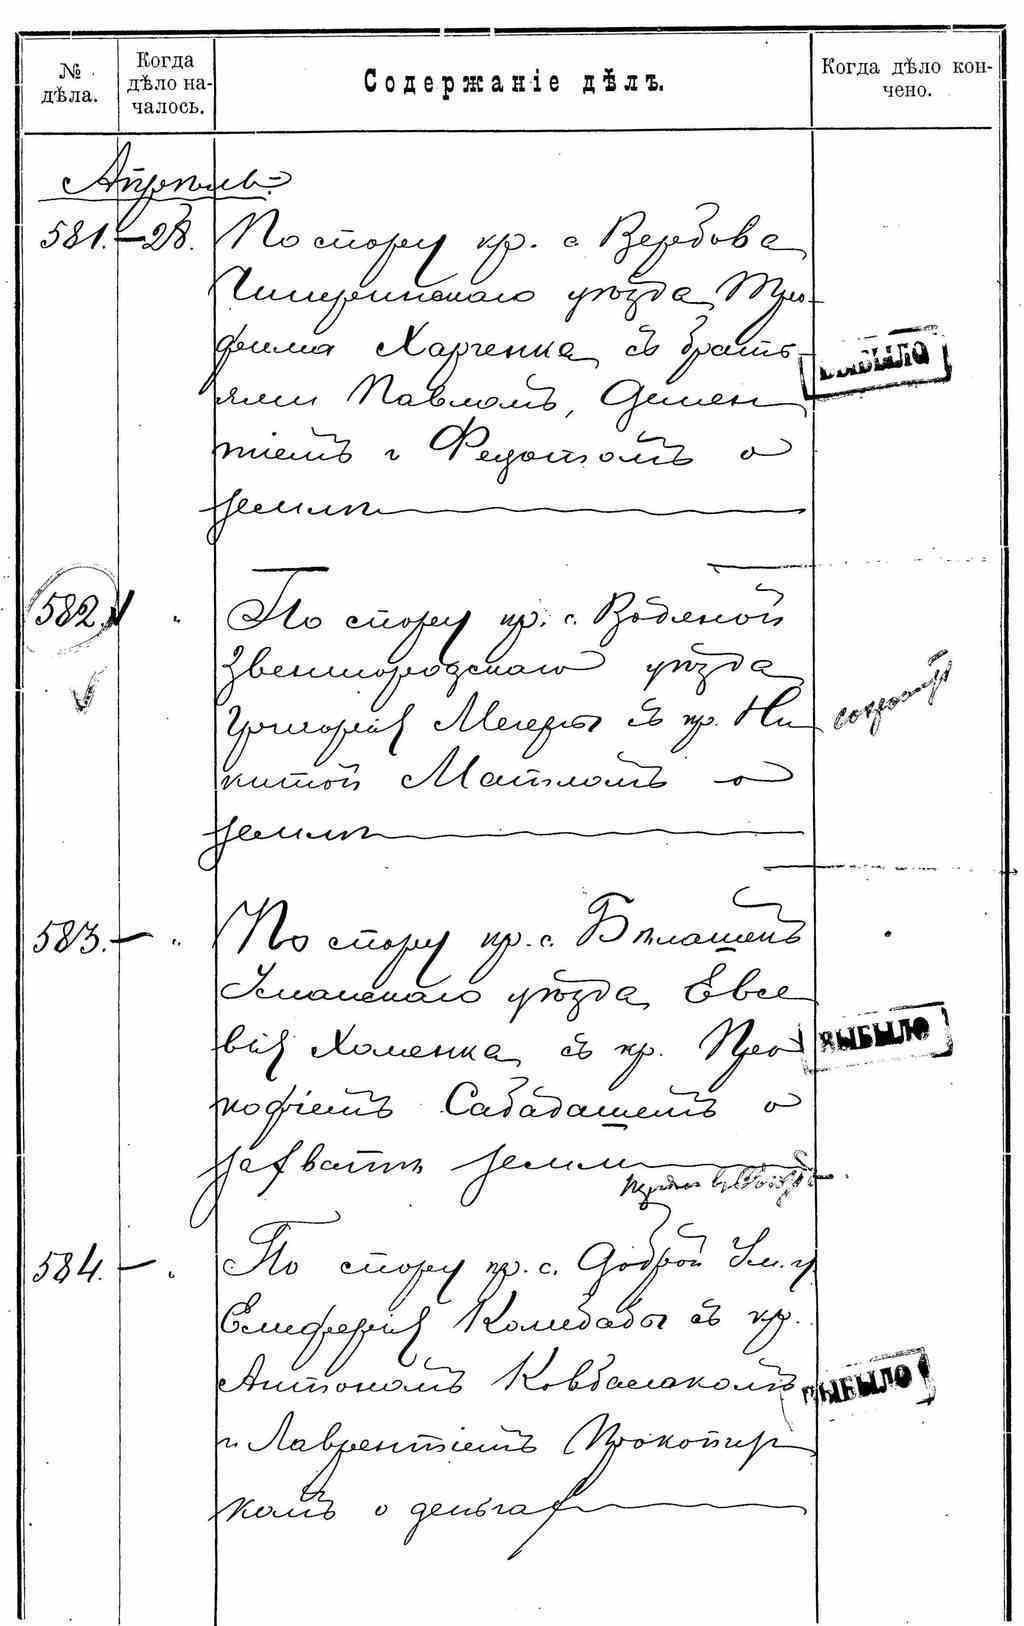 № дѣла.
Когда дѣло началось.
Содержанiе дѣлъ.
Когда дѣло кончено.
Апрель
581. — 28. По спору кр. с. Вербова
Чигиринскаго уѣзда Тро-
фима Харченка съ брать-
ями Павломъ, Демен
тіемъ и Федотомъ о
землѣ
ВЫБЫЛО
582 " По спору кр. с. Водяной
Звенигородскаго уѣзда
Григорія Мегеры съ кр. Ни
китой Матломъ о
землѣ
583. — " По спору кр. с. Бѣлашекъ
Уманскаго уѣзда Евсе
вія Хоменка съ кр. Про
кофіемъ Сабадашемъ о
захватѣ земли
ВЫБЫЛО
584. — " По спору кр. с. Доброй Ум. у
Елиферія Колибабы съ кр.
Антономъ Ковбасакомъ
и Лаврентіемъ Прокопчу
комъ о деньгах
ВЫБЫЛО